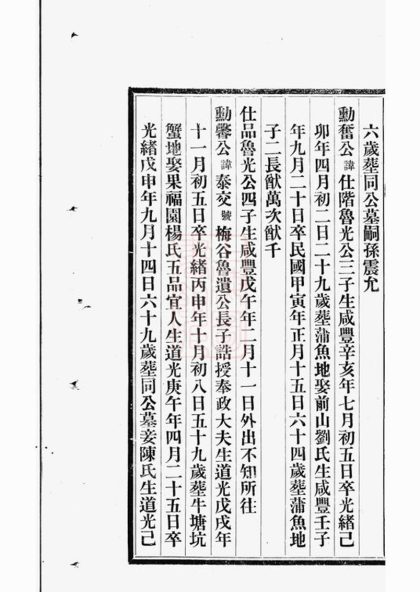 六歲葬同公墓嗣孫震允
勳奮公諱仕階魯光公三子生咸豐辛亥年七月初五日卒光緒己
卯年四月初二日二十九歲葬蒲魚地娶前山劉氏生咸豐壬子
年九月二十日卒民國甲寅年正月十五日六十四歲葬蒲魚地
子二長猷萬次猷千
仕品魯光公四子生咸豐戊午年二月十一日外出不知所往
勳馨公諱泰交號梅谷魯遺公長子誥授奉政大夫生道光戊戌年
十一月初五日卒光緒丙申年十月初八日五十九歲葬牛塘坑
蟹地娶果福園楊氏五品宜人生道光庚午年四月二十五日卒
光緒戊申年九月十四日六十九歲葬同公墓妾陳氏生道光己